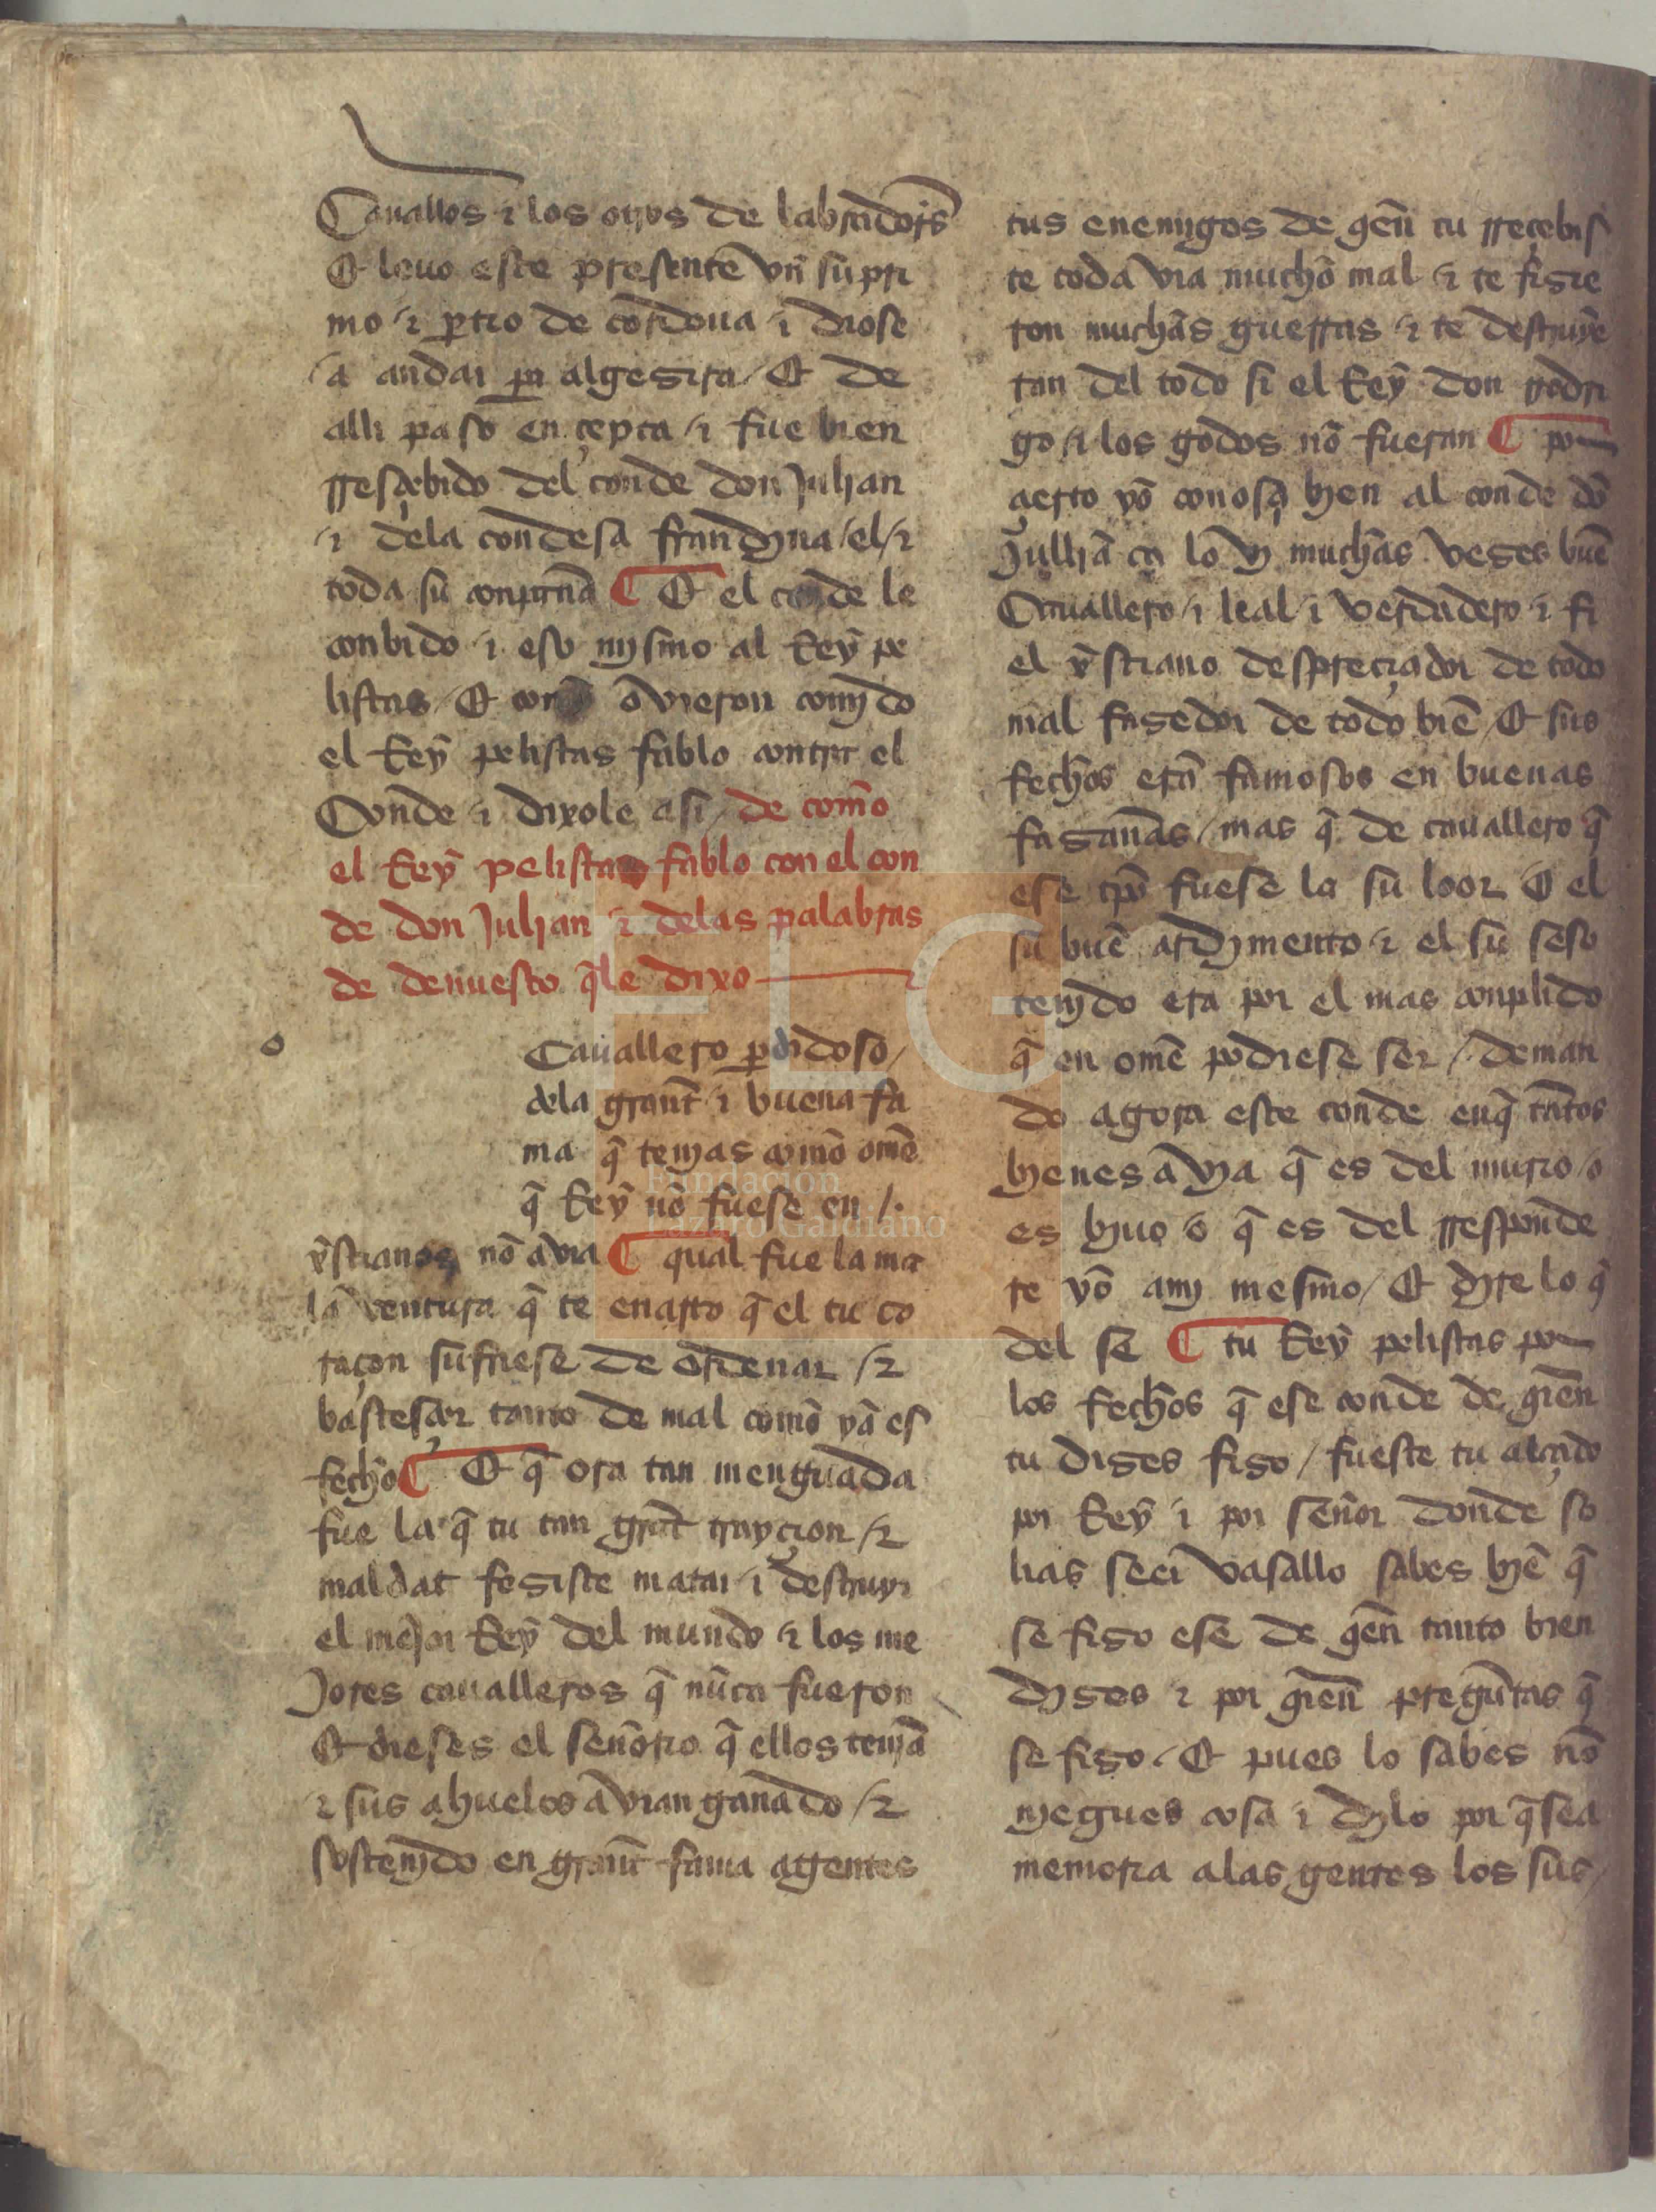 Cauallos ⁊ los otros de labradors̃
Et leuo este presente vn̄ su pri
mo ⁊ ꝑtio de cordoua ⁊ diose
a andar pa algesira Et de
alli paso en çepta ⁊ fue bien
rresçebido del conde don Julian
⁊ dela condesa frandyna el ⁊
toda su conpan̄a ¶ Et el conde le
conbido ⁊ eso mjsmo al Rey pe
listas Et como ovieron comjdo
el Rey pelistas fablo contra el
Conde ⁊ dixole asi de com̄o
el Rey pelistas fablo con el con
de don Julian ⁊ delas palabras
de denuesto q̄le dixo
o
Cauallero ꝑdidoso
dela grant̄ ⁊ buena fa
ma q̄ tenjas com̄o om̄e
q̄ Rey nō fuese en
xp̄stianos nō avia ¶ qual fue la ma
la ventura q̄ te enarto q̄ el tu co
raçon sufriese de ordenar ⁊
basteçer tanto de mal com̄o ya es
fecho ¶ Et q̄ ora tan menguada
fue la q̄ tu tan grāt trayçion ⁊
maldat fesiste matar ⁊ destruyr
el mejor Rey del mundo ⁊ los me
Jores caualleros q̄ nūca fueron
Et dieses el sen̄orio q̄ ellos tenjā
⁊ sus ahuelos avian ganado ⁊
sostenjdo en grant̄ fama agentes
tus enemjgos de qen̄ tu rreçebis
te toda via mucho mal ⁊ te fisie
ron muchas guerras ⁊ te destruye
ran del todo si el Rey don rrodri
go ⁊ los godos nō fueran ¶ por
çierto yo conosçi byen al conde dō
Jullia ca lo vy muchas veses buē
Cauallero ⁊ leal ⁊ verdadero ⁊ fi
el xp̄stiano despreçiador de todo
mal fasedor de todo biē Et sus
fechos erā famosos en buenas
fasan̄as mas q̄ de cauallero q̄
ese tp̄o fuese la su loor Et el
su buē ardymento ⁊ el su seso
tenjdo era por el mas conplido
q̄ en om̄e podiese ser deman
do agora este conde en q̄ tātos
byenes avya q̄ es del muerto o
es byuo o q̄ es del rresponde
re yo amj mesmo Et dyre lo q̄
del se ¶ tu Rey pelistas por
los fechos q̄ ese conde de qien̄
tu dises fiso fueste tu alçado
por Rey ⁊ por sen̄or donde so
lias seer vasallo sabes byē q̄
se fiso ese de qen̄ tanto bien
dyses ⁊ por qien̄ pregūtas q̄
se fiso Et pues lo sabes nō
nyegues cosa ⁊ dylo por q̄ sea
memoria alas gentes los sus
FLG
Fundación
Lázaro Galdiano